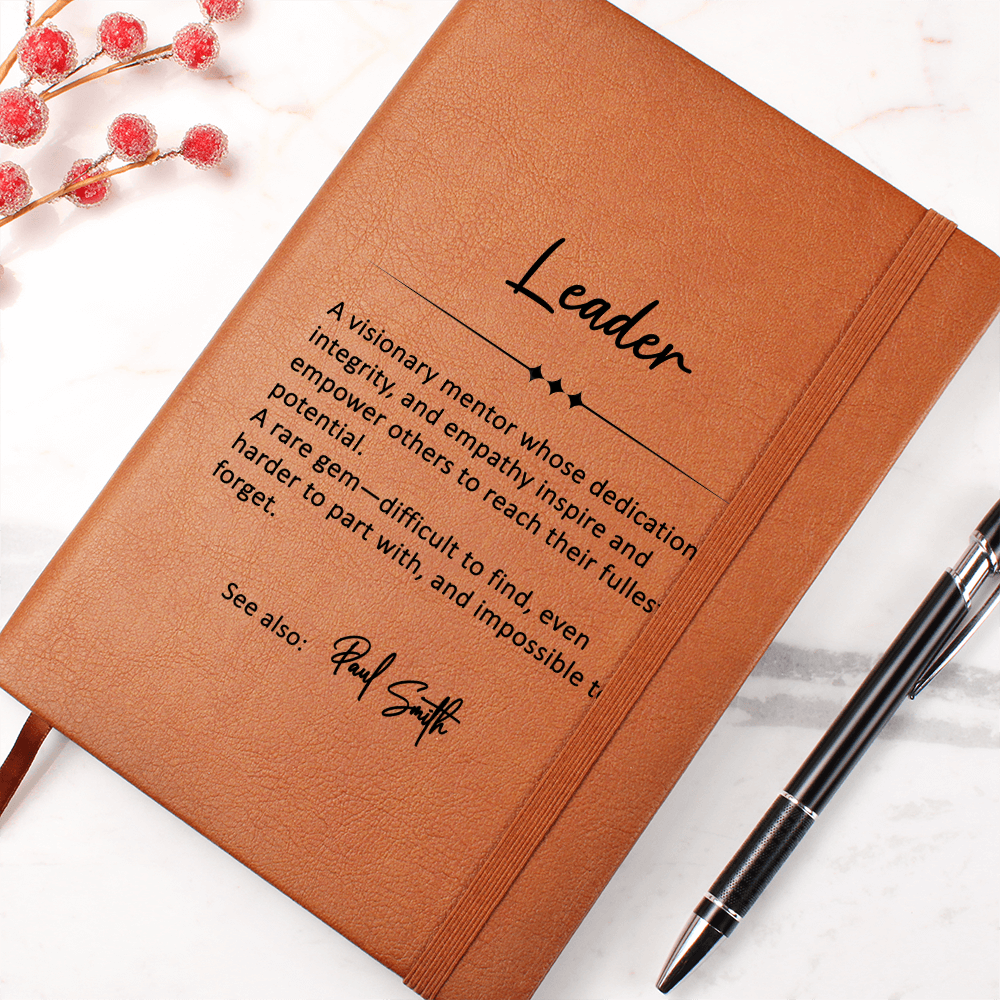 Leader
A visionary mentor whose dedication
integrity, and empathy inspire and
empower others to reach their fulles
potential.
A rare gem—difficult to find, even
harder to part with, and impossible t
forget.
See also: Paul Smith